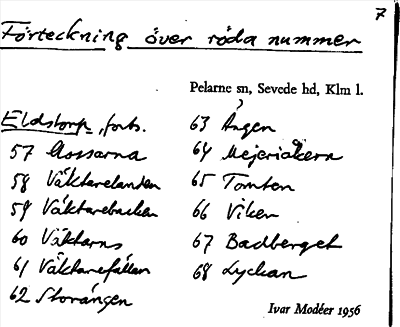 7
Förteckning över röda nummer
Pelarne sn, Sevede hd, Klm l.
Eldstorp, forts.
57 Mossarna
58 Väktarelanden
59 Väktarebacken
60 Väktarns
61 Väktarefällan
62 Storängen
63 Ängen
64 Mejeriåkern
65 Tomten
66 Viken
67 Badberget
68 Lyckan
Ivar Modéer 1956